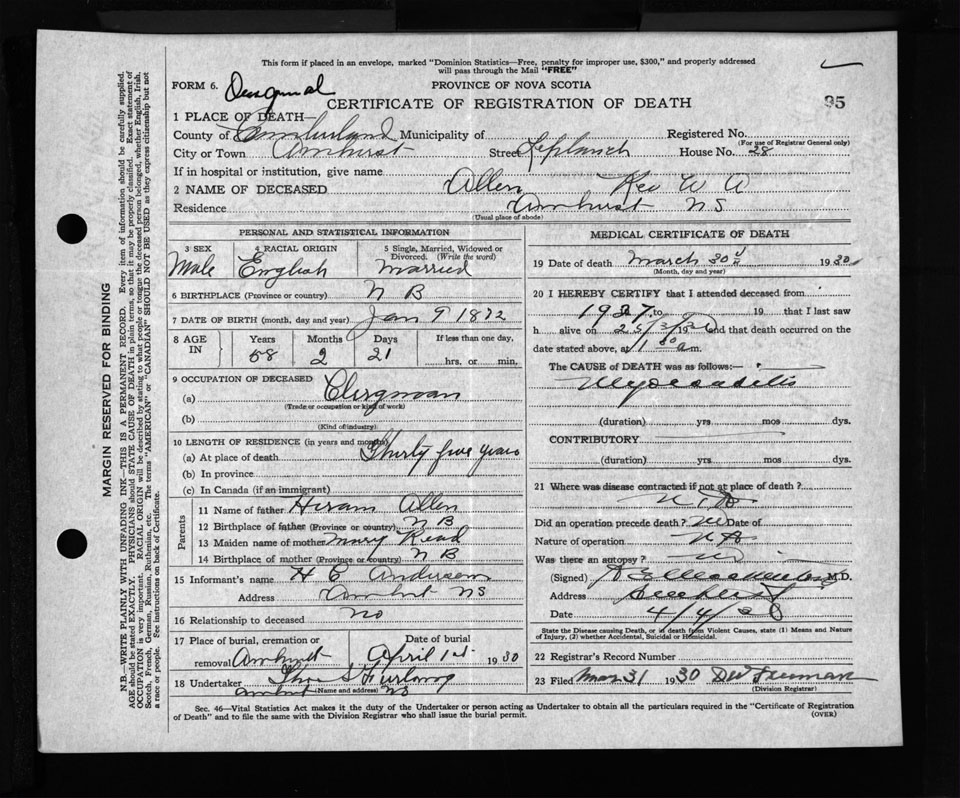 This form if placed in an envelope, marked "Dominion Statistics—Free, penalty for improper use, $300," and properly addressed
will pass through the Mail "FREE"
FORM 6.
PROVINCE OF NOVA SCOTIA
CERTIFICATE OF REGISTRATION OF DEATH
95
1 PLACE OF DEATH—
County of Cumberland Municipality of Registered No.
(For use of Registrar General only)
City or Town Amhurst Street Leplanch House No. 28
If in hospital or institution, give name
2 NAME OF DECEASED Allen Rev W A
Residence Amhurst NS
(Usual place of abode)
PERSONAL AND STATISTICAL INFORMATION
3 SEX 4 RACIAL ORIGIN 5 Single, Married, Widowed or Divorced. (Write the word)
Male English Married
6 BIRTHPLACE (Province or country) N B
7 DATE OF BIRTH (month, day and year) Jan 9 1872
8 AGE IN Years Months Days If less than one day,
58 2 21 hrs. or min.
9 OCCUPATION OF DECEASED
(a) Clergman
(Trade or occupation or kind of work)
(b)
(Kind of industry)
10 LENGTH OF RESIDENCE (in years and months)
(a) At place of death Thirty five years
(b) In province
(c) In Canada (if an immigrant)
Parents
11 Name of father Hiram Allen
12 Birthplace of father (Province or country) N B
13 Maiden name of mother Mary Read
14 Birthplace of mother (Province or country) N B
15 Informant's name H C Anderson
Address Amhurst NS
16 Relationship to deceased no
17 Place of burial, cremation or removal Amhurst Date of burial April 1st 1930
18 Undertaker S Furlong
(Name and address) NS
MEDICAL CERTIFICATE OF DEATH
19 Date of death March 30 1930
(Month, day and year)
20 I HEREBY CERTIFY that I attended deceased from
1927, to 19 that I last saw
h alive on 25/3/19 and that death occurred on
date stated above, at 1 30 a m.
The CAUSE of DEATH was as follows:—
Myocarditis
(duration) yrs mos dys.
CONTRIBUTORY
(duration) yrs mos dys.
21 Where was disease contracted if not at place of death?
Did an operation precede death? No Date of
Nature of operation
Was there an autopsy? No
(Signed) M.D.
Address
Date 4/4/30
State the Disease causing Death, or in death from Violent Causes, state (1) Means and Nature of Injury, (2) whether Accidental, Suicidal or Homicidal.
22 Registrar's Record Number
23 Filed Mar 31 1930 D W Freeman
(Division Registrar)
Sec. 46—Vital Statistics Act makes it the duty of the Undertaker or person acting as Undertaker to obtain all the particulars required in the "Certificate of Registration
of Death" and to file the same with the Division Registrar who shall issue the burial permit.
(OVER)
MARGIN RESERVED FOR BINDING
N.B.—WRITE PLAINLY WITH UNFADING INK—THIS IS A PERMANENT RECORD. Every item of information should be carefully supplied.
AGE should be stated EXACTLY. PHYSICIANS should STATE CAUSE OF DEATH in plain terms, so that it may be properly classified. Exact statement of
OCCUPATION is very important. RACIAL ORIGIN will be described by stating to what people or tongue the deceased person belonged, whether English, Irish,
Scotch, French, German, Russian, Ruthenian, etc. The terms "AMERICAN" or "CANADIAN" SHOULD NOT BE USED as they express citizenship but not
a race or people. See instructions on back of Certificate.